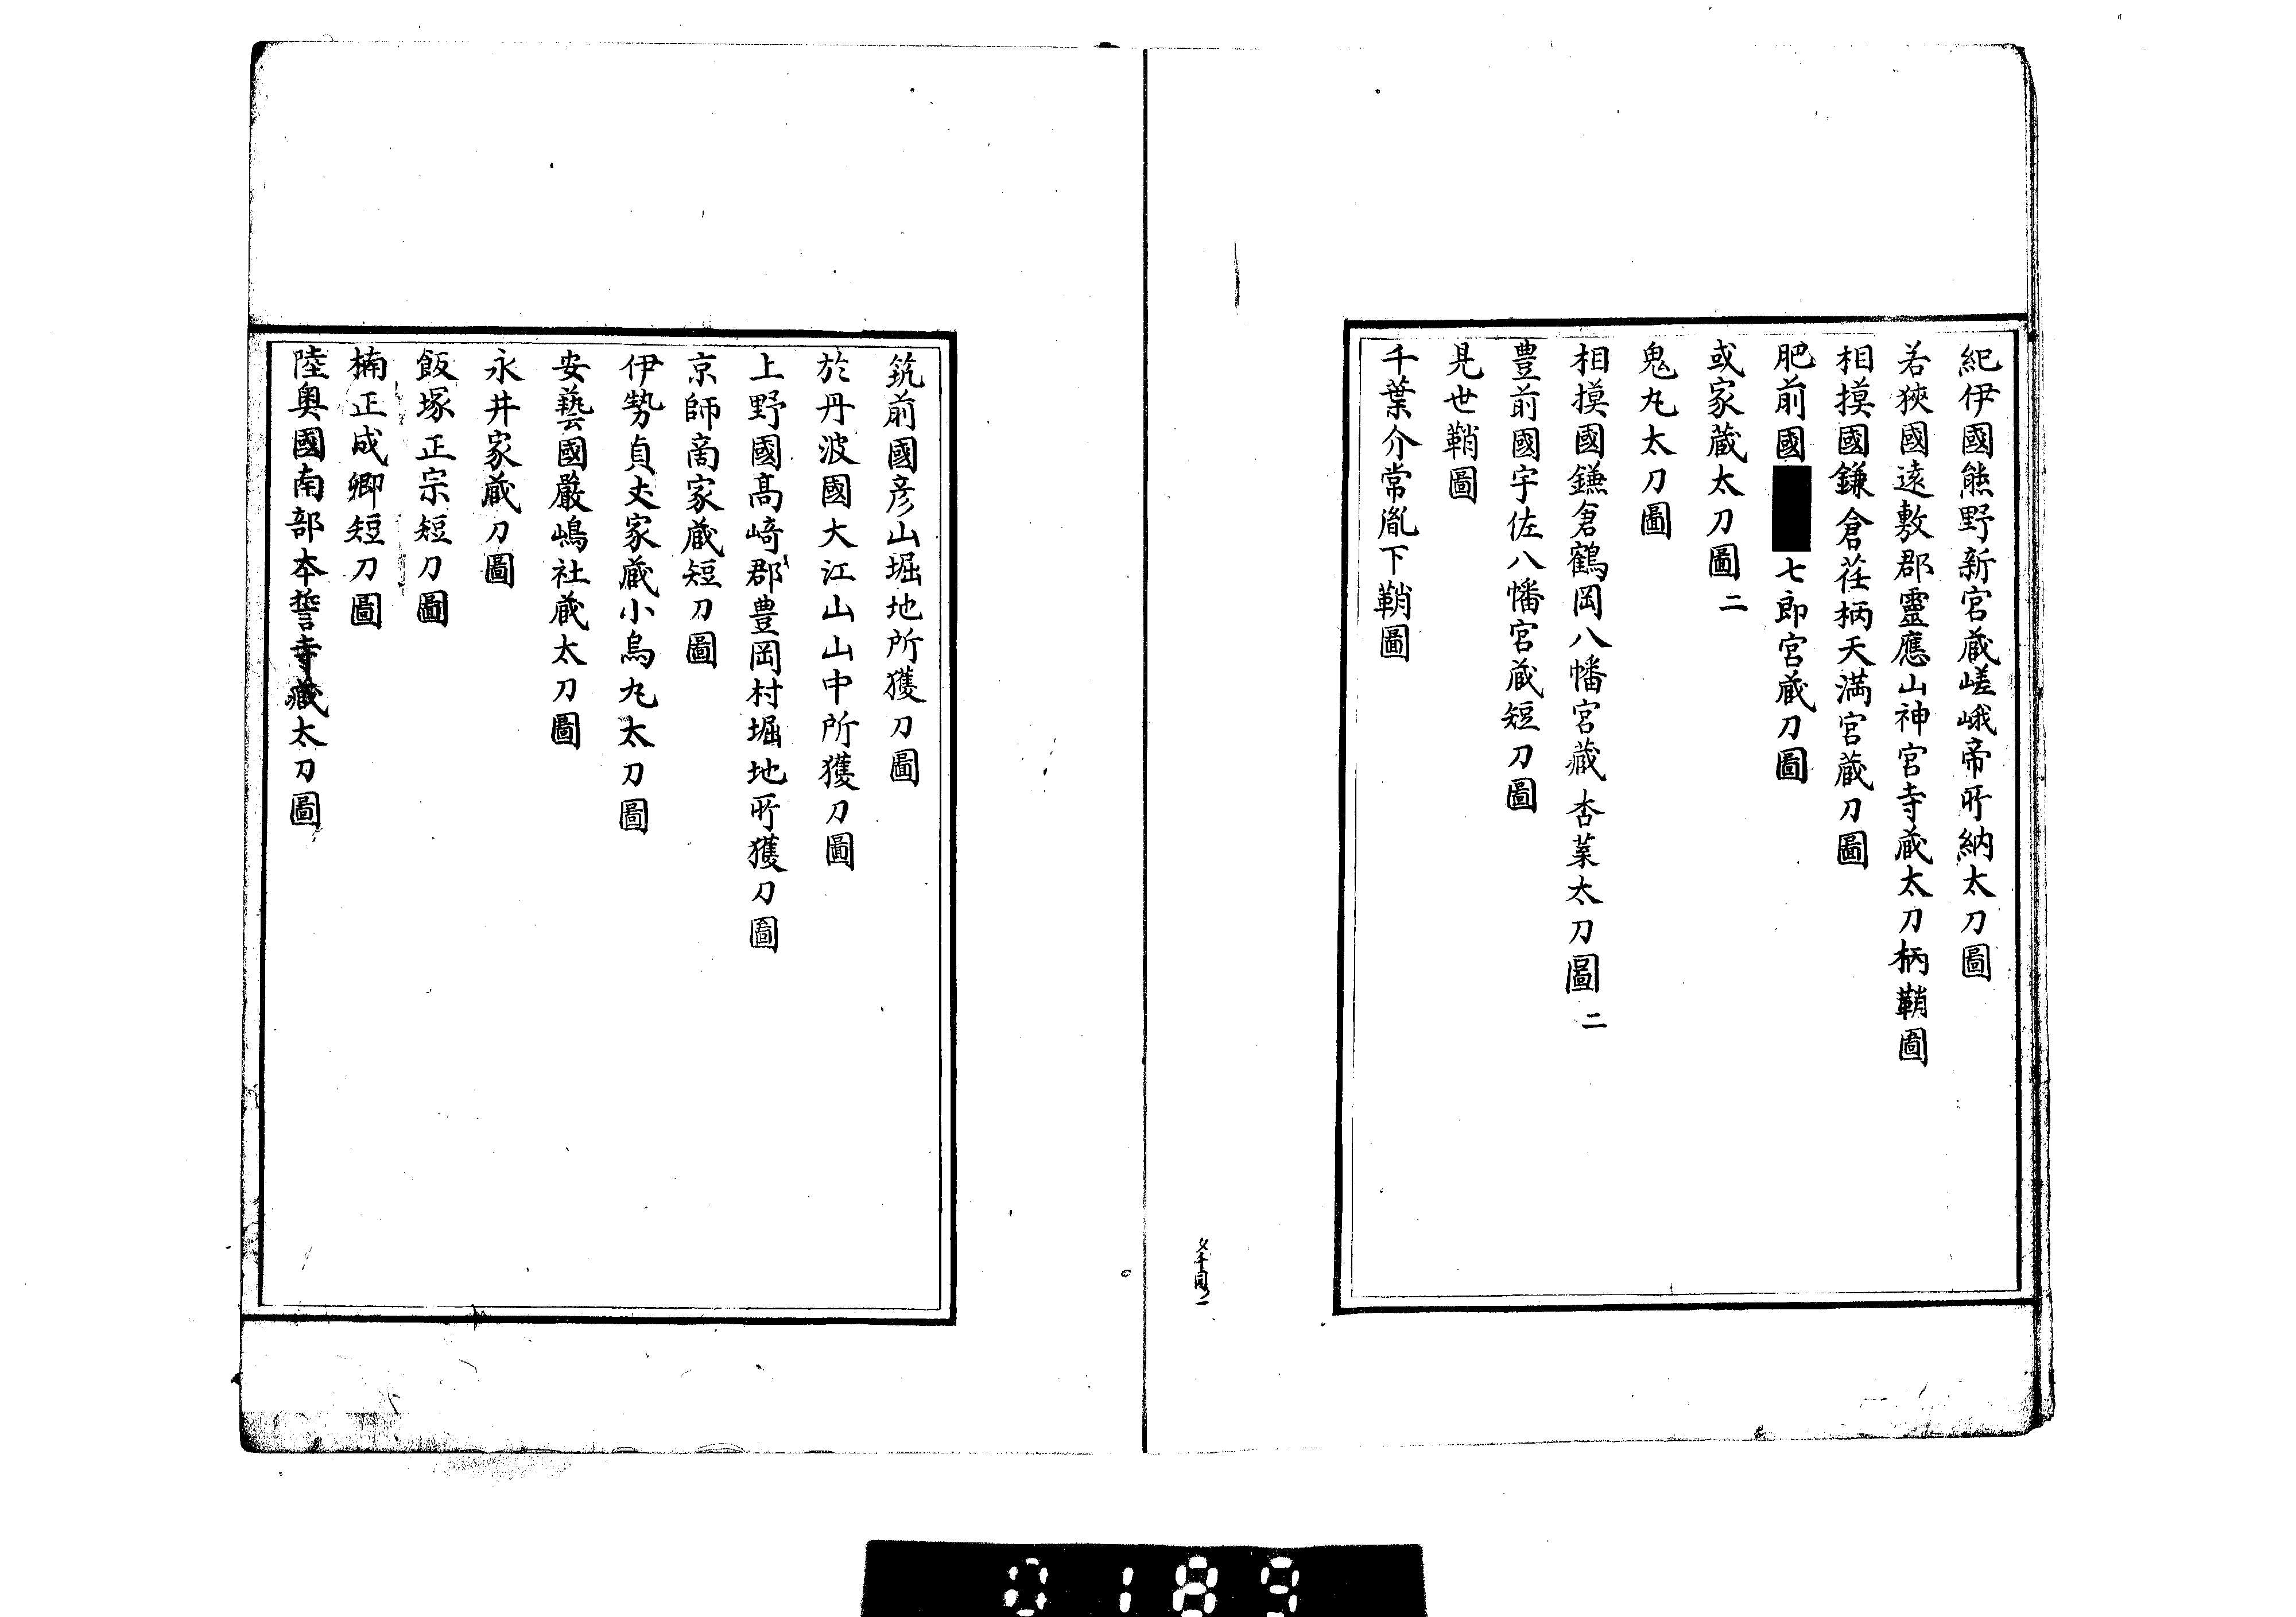 紀伊國熊野新宮蔵嵯峨帝所納太刀圖
若狹國遠敷郡靈應山神宮寺蔵太刀柄鞘圖
相摸國鎌倉荏柄天満宮蔵刀圖
肥前國 七郎宮蔵刀圖
或家蔵太刀圖 二
鬼丸太刀圖
相摸國鎌倉鶴岡八幡宮蔵杏葉太刀圖 二
豊前國宇佐八幡宮蔵短刀圖
見世鞘圖
千葉介常胤下鞘圖
筑前國彦山堀地所獲刀圖
於丹波國大江山山中所獲刀圖
上野國髙崎郡豊岡村堀地所獲刀圖
京師啇家蔵短刀圖
伊勢貞丈家蔵小烏丸太刀圖
安藝國嚴嶋社蔵太刀圖
永井家蔵刀圖
飯塚正宗短刀圖
楠正成卿短刀圖
陸奥國南部本誓寺蔵太刀圖
0189